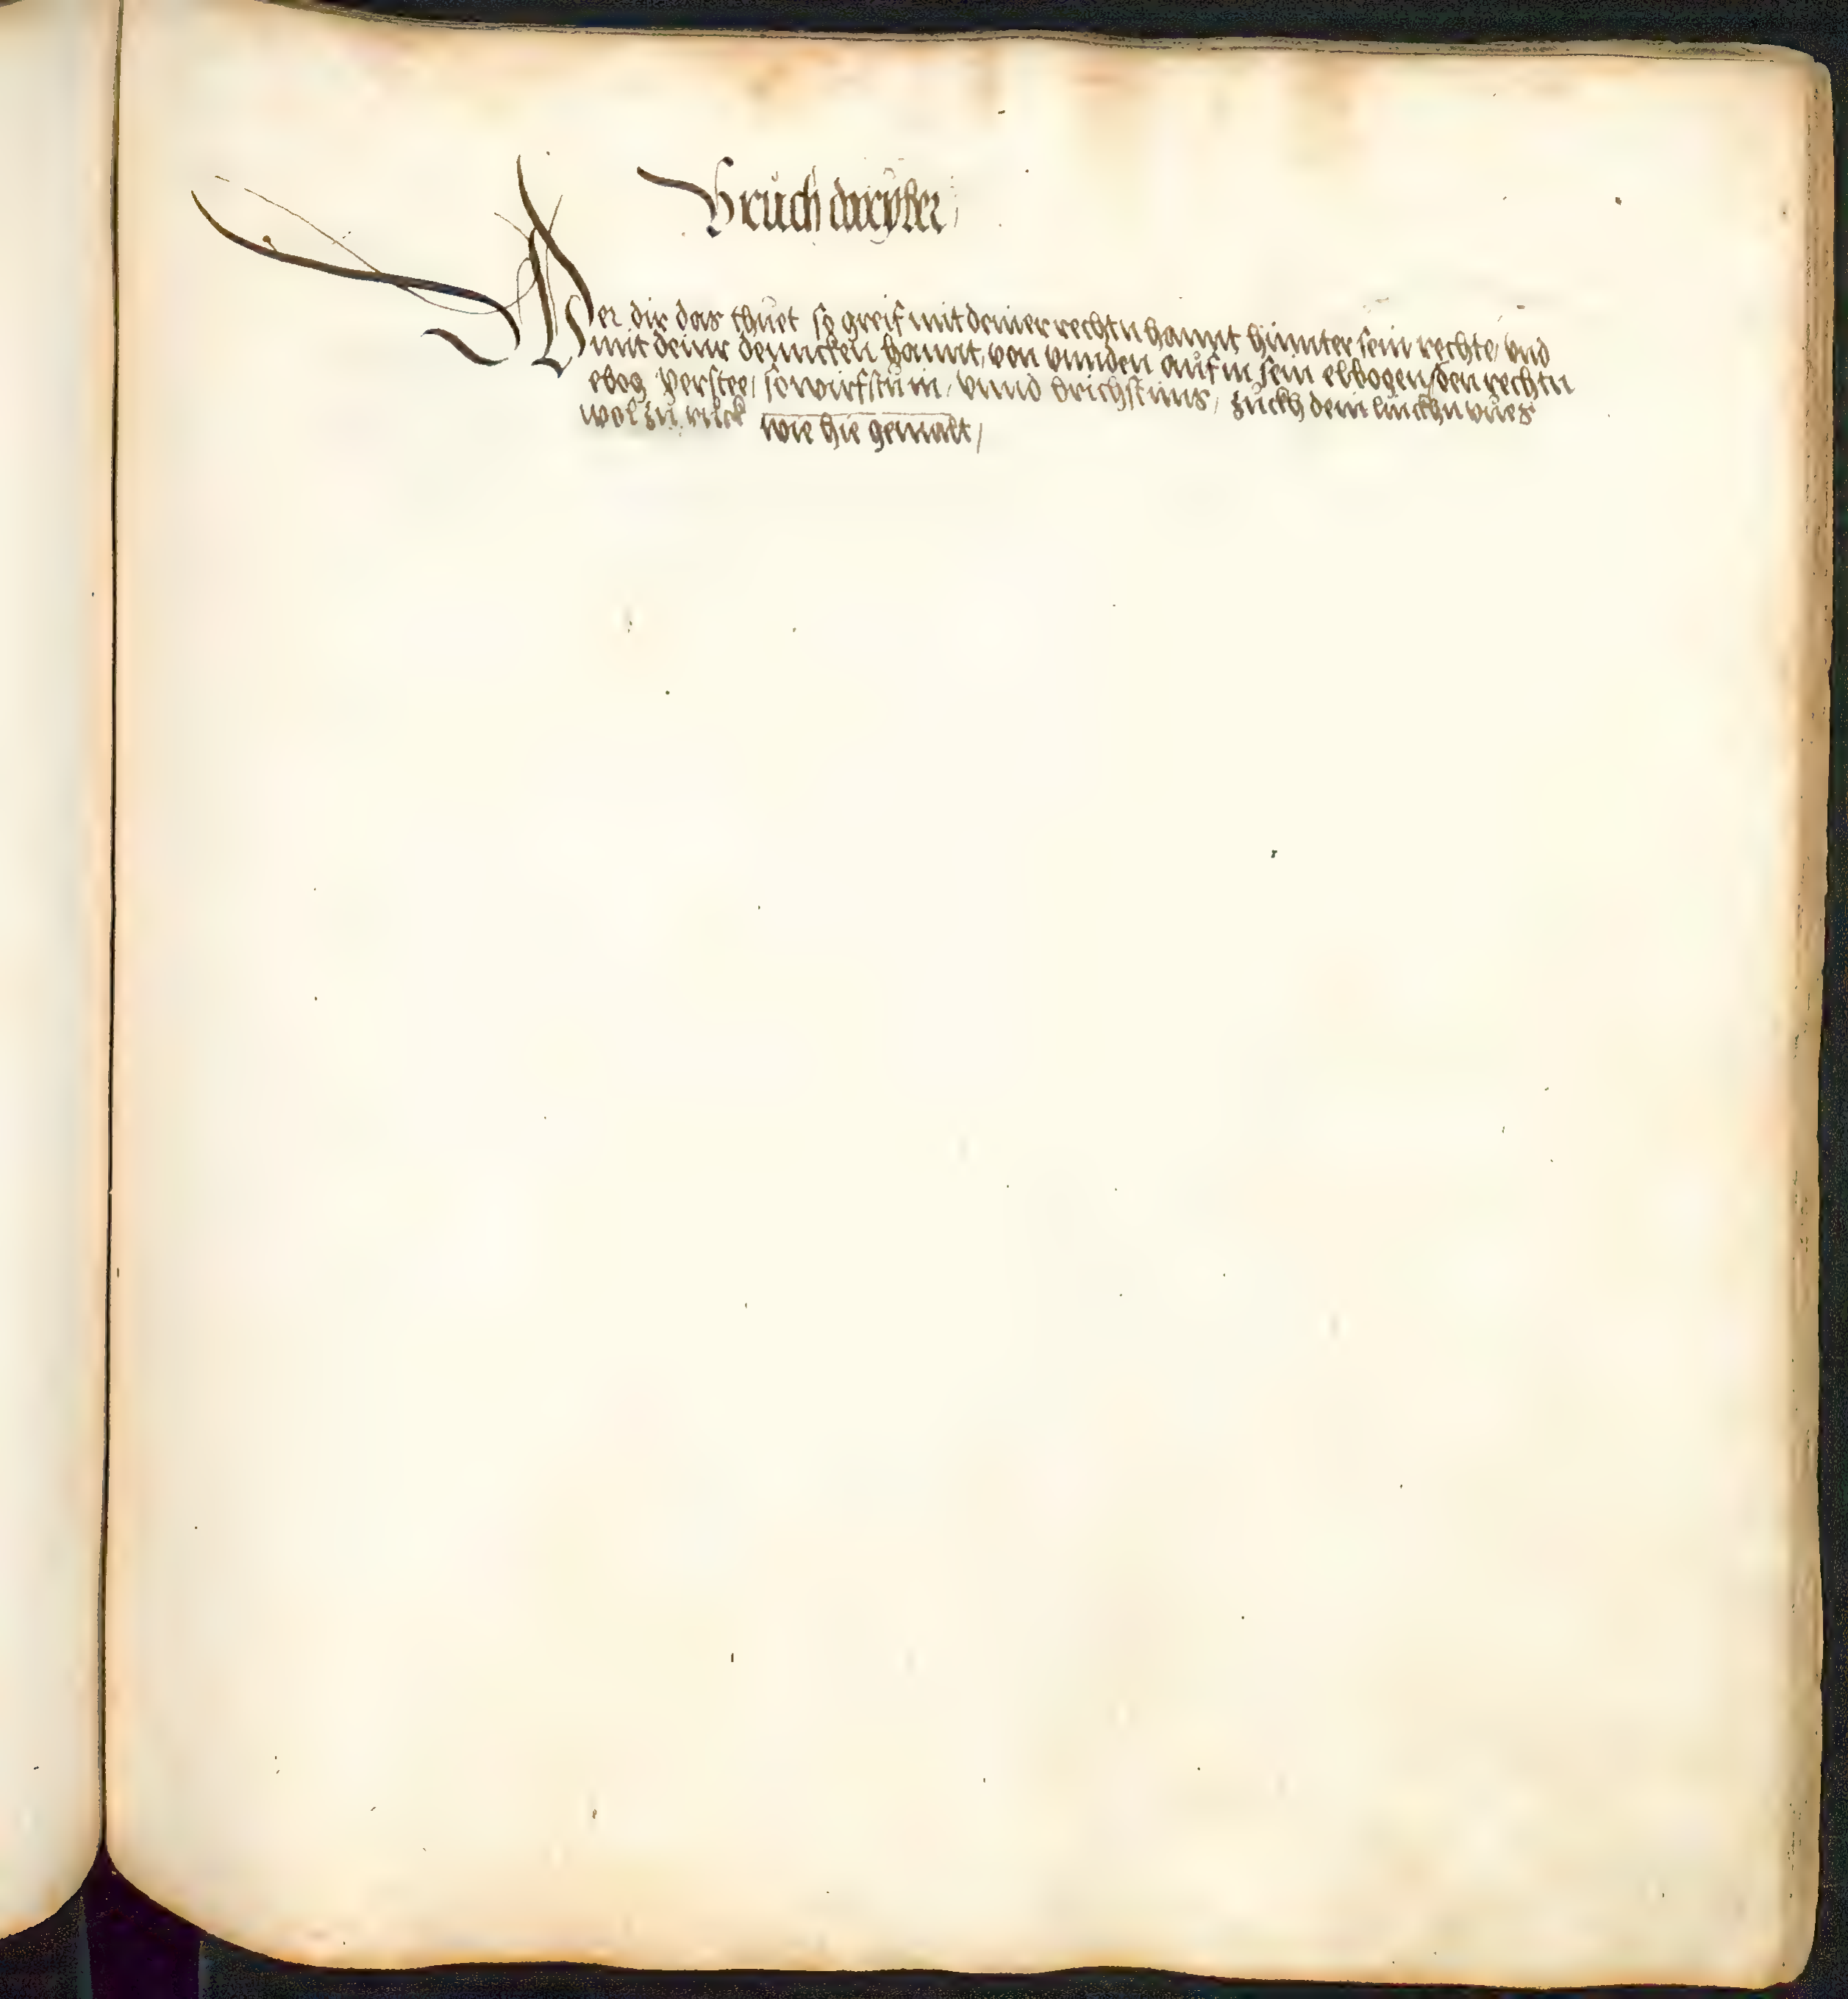 Bruch daryber /
Wer dir das thuet so greif mit deiner rechtn hannt hinnter sein rechte / vnd
mit deinr denncken hannt, von vnnden auf in sein elbogen / den rechtn
ebog verstee / so wirfstu in / vnnd brichst ims / zuckh dein linckhn vues
wol zu ruck wie hie gemalt /